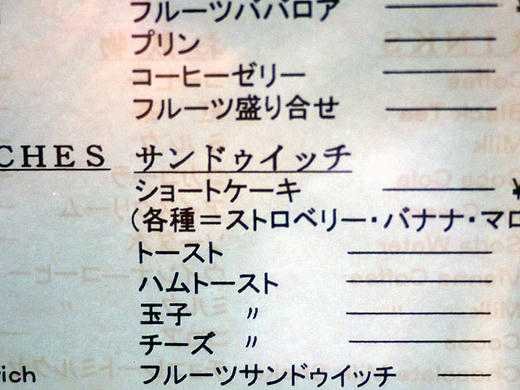 フルーツババロア
プリン
コーヒーゼリー
フルーツ盛り合せ
CHES サンドゥイッチ
ショートケーキ ¥
(各種=ストロベリー・バナナ・マロ
トースト
ハムトースト
玉子 〃
チーズ 〃
rich フルーツサンドゥイッチ